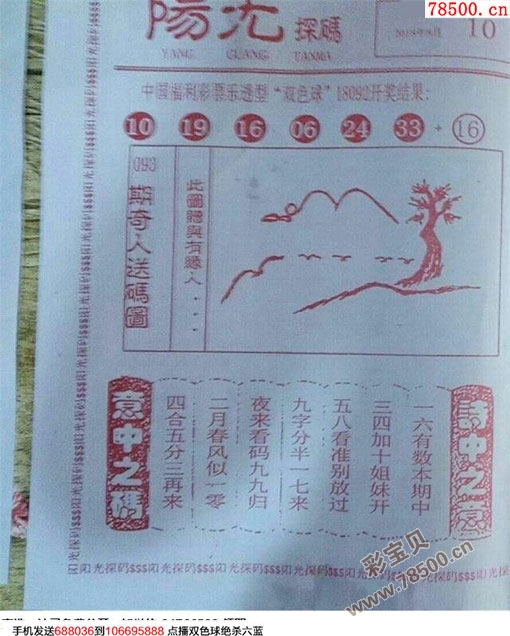 78500.cn
陽光 探碼
YANG GUANG TANMA
10
中国福利彩票乐透型“双色球”18092开奖结果:
10 19 16 06 24 33 + 16
093
期奇人送碼圖
此圖贈與有緣人...
一六有数本期中
三四加十姐妹开
五八看准别放过
九字分半一七来
夜来看码九九归
二月春风似一零
四合五分三再来
意中之碼
阳光探码$$$阳光探码$$$阳光探码$$$阳光探码$$$
彩宝贝
www.78500.cn
手机发送688036到106695888 点播双色球绝杀六蓝